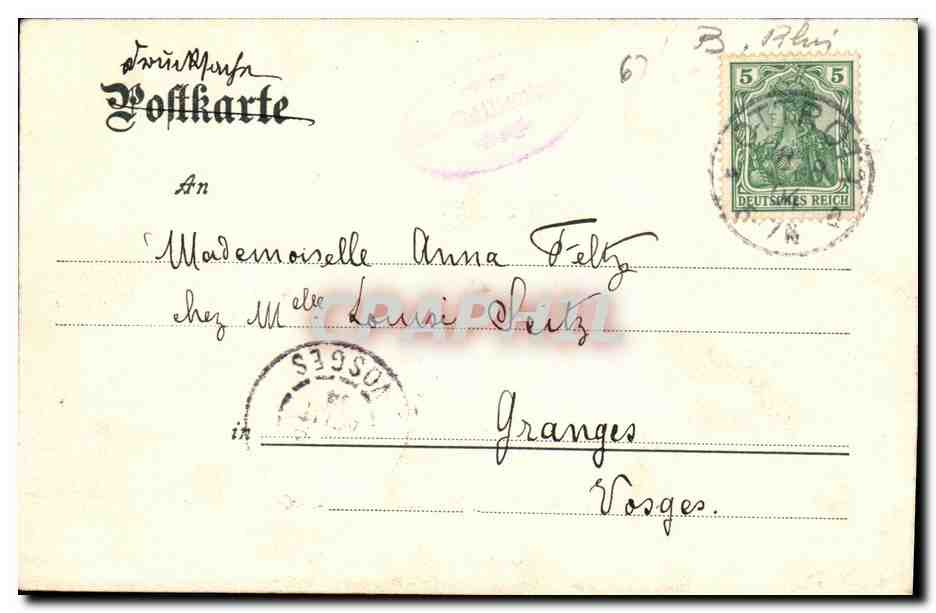 B. Rhin
67
Drucksache
Postkarte
5 5
DEUTSCHES REICH
An
Mademoiselle Anna Feltz
chez Melle Louise Seitz
CPAPHIL
VOSGES
in Granges
Vosges.